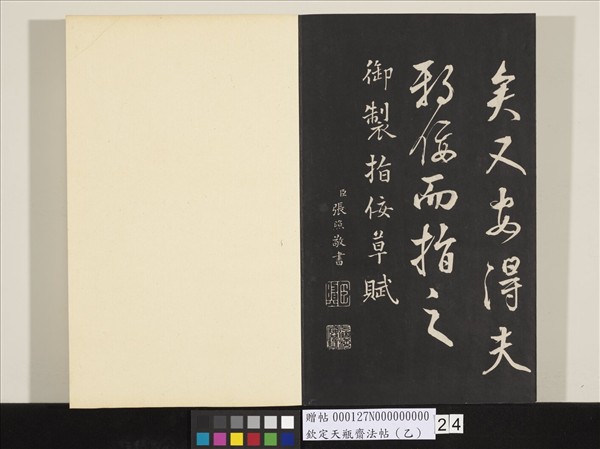 矣又安得夫
邪佞而指之
御製指佞草賦
臣張照敬書
贈帖 000127N000000000
欽定天瓶齋法帖（乙）
24